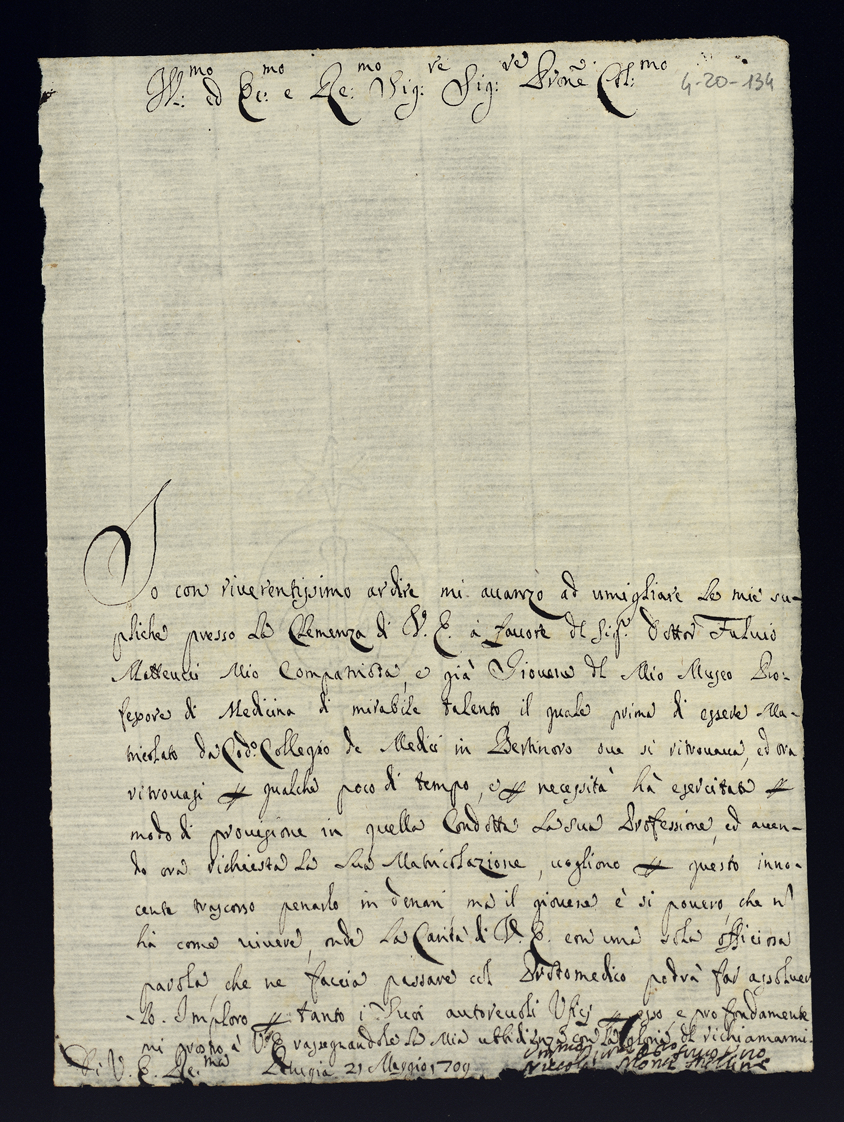 Ill:mo ed Ec:mo e Re:mo Sig:re Sig:re Prone Col:mo
4-20-134
Io con riverentissimo ardire mi avanzo ad umigliare le mie su-
pliche presso la Clemenza di V. E. à favore del Sig.r Dottor Fulvio
Matteucci Mio Compatriota, e già Giovene del Mio Museo Pro-
fessore di Medicina di mirabile talento il quale prima di essere Ma-
tricolato da Cod.o Collegio de Medici in Bertinoro ove si ritrovava, ed ora
ritrovasi p qualche poco di tempo, e p necessità hà esercitata p
modo di provisione in quella Condotta la sua Professione, ed aven-
do ora richiesta la sua Matricolazione, vogliono p questo inno-
cente trascorso penarlo in denari ma il giovene è si povero che n
hà come vivere, onde la Carità di V. E. con una sola officiosa
parola che ne faccia passare col Protomedico potrà far assolver
lo. Imploro p tanto i Suoi autorevoli Uficj p esso e profondamente
mi prostro à V. E. rassegnandole la mia ubbidienza con la gloria di richiamarmi
Di V. E. Re.ma Perugia 21 Maggio 1709